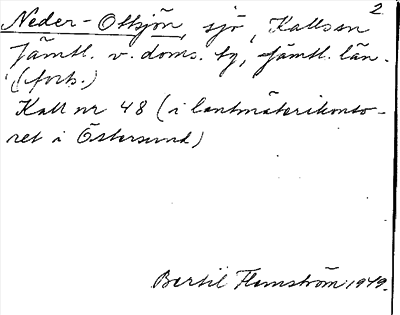 2.
Neder-Oltsjön, sjö, Kallsn
Jämtl. v. doms. tg, Jämtl. län.
(forts.)
Kall nr 48 (i lantmäterikonto-
ret i Östersund)
Bertil Flemström 1949.